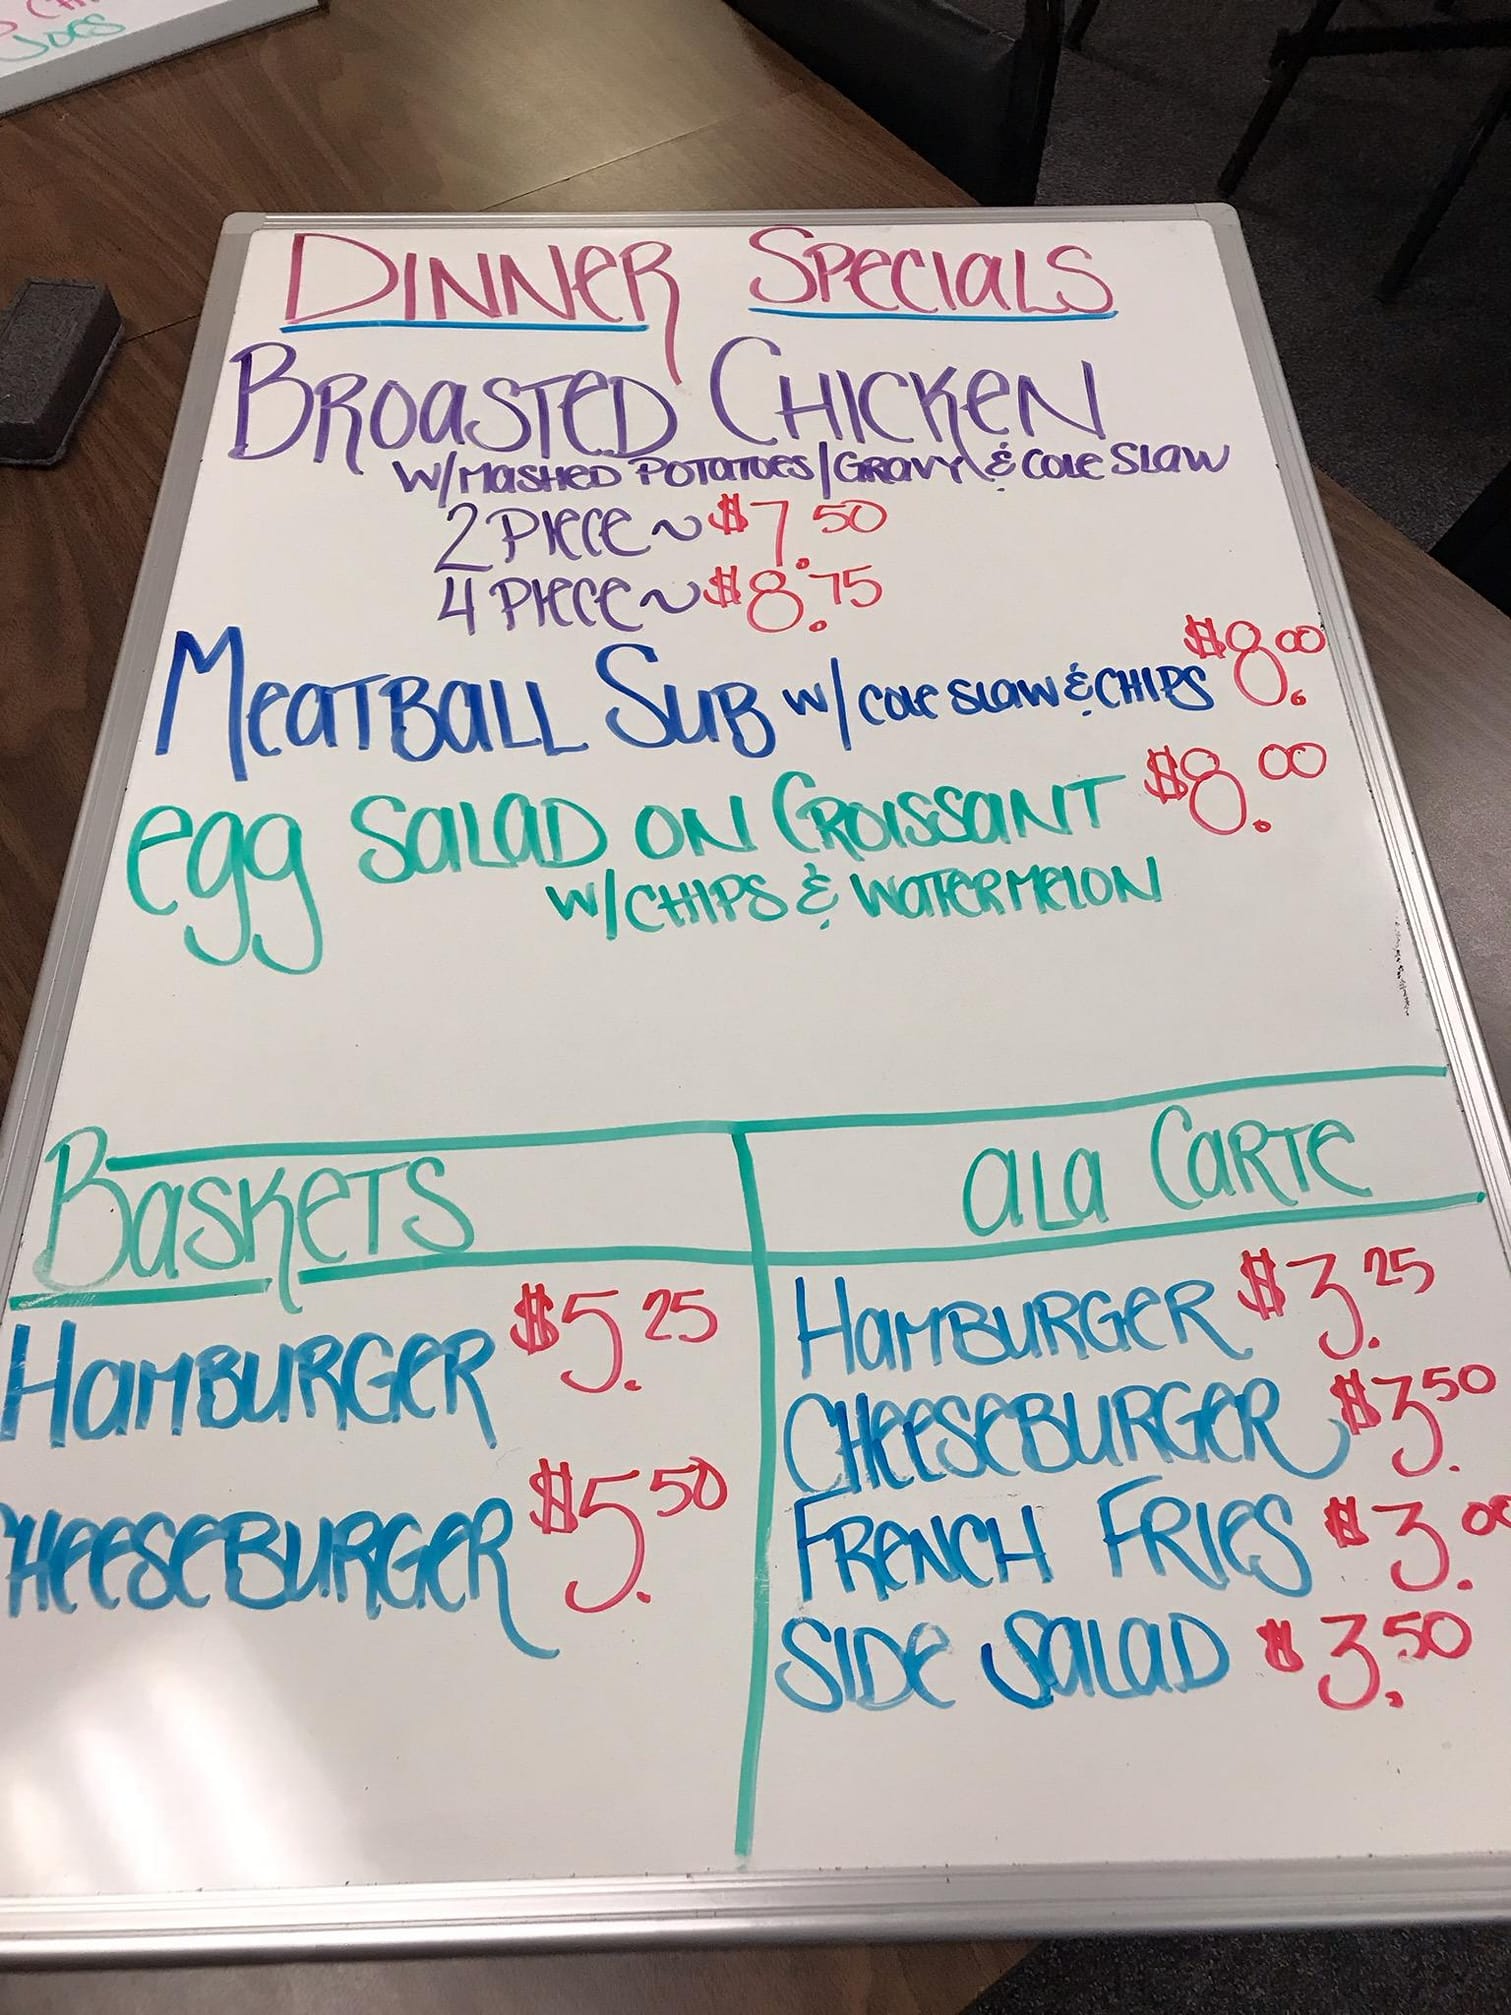 JOES
DINNER SPECIALS
BROASTED CHICKEN
W/MASHED POTATOES/GRAVY & COLE SLAW
2 PIECE ~ $7.50
4 PIECE ~ $8.75
MEATBALL SUB W/ COLE SLAW & CHIPS $8.00
egg SALAD ON CROISSANT $8.00
W/CHIPS & WATERMELON
BASKETS
HAMBURGER $5.25
CHEESEBURGER $5.50
ALA CARTE
HAMBURGER $3.25
CHEESEBURGER $3.50
FRENCH FRIES $3.00
SIDE SALAD $3.50